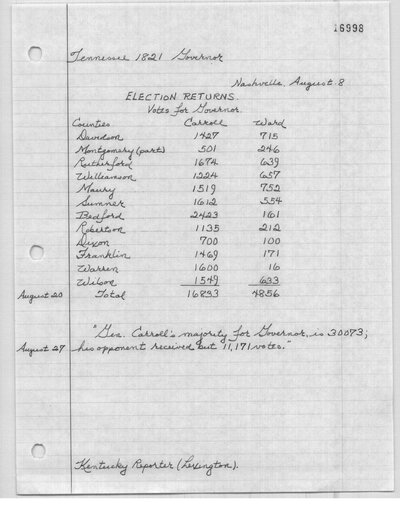 16998
Tennessee 1821 Governor
Nashville, August 8
ELECTION RETURNS.
Votes for Governor.
Counties Carroll Ward
Davidson 1427 715
Montgomery (part) 501 246
Rutherford 1674 639
Williamson 1224 657
Maury 1519 752
Sumner 1612 554
Bedford 2423 161
Robertson 1135 212
Dixon 700 100
Franklin 1469 171
Warren 1600 16
Wilson 1549 633
August 20 Total 16833 4856
"Gen. Carroll's majority for Governor, is 30073;
August 27 his opponent received but 11,171 votes."
Kentucky Reporter (Lexington).